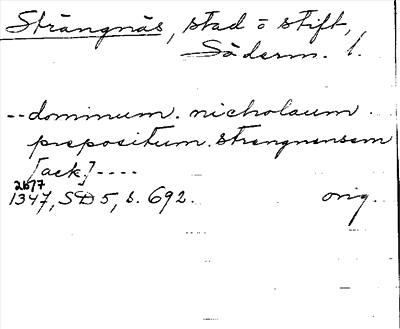 Strängnäs, stad o stift,
Söderm. l.
-- dominum . nicholaum .
prepositum . strengnensem
[ack.] ----
26/7
1347, SD 5, s. 692. orig.